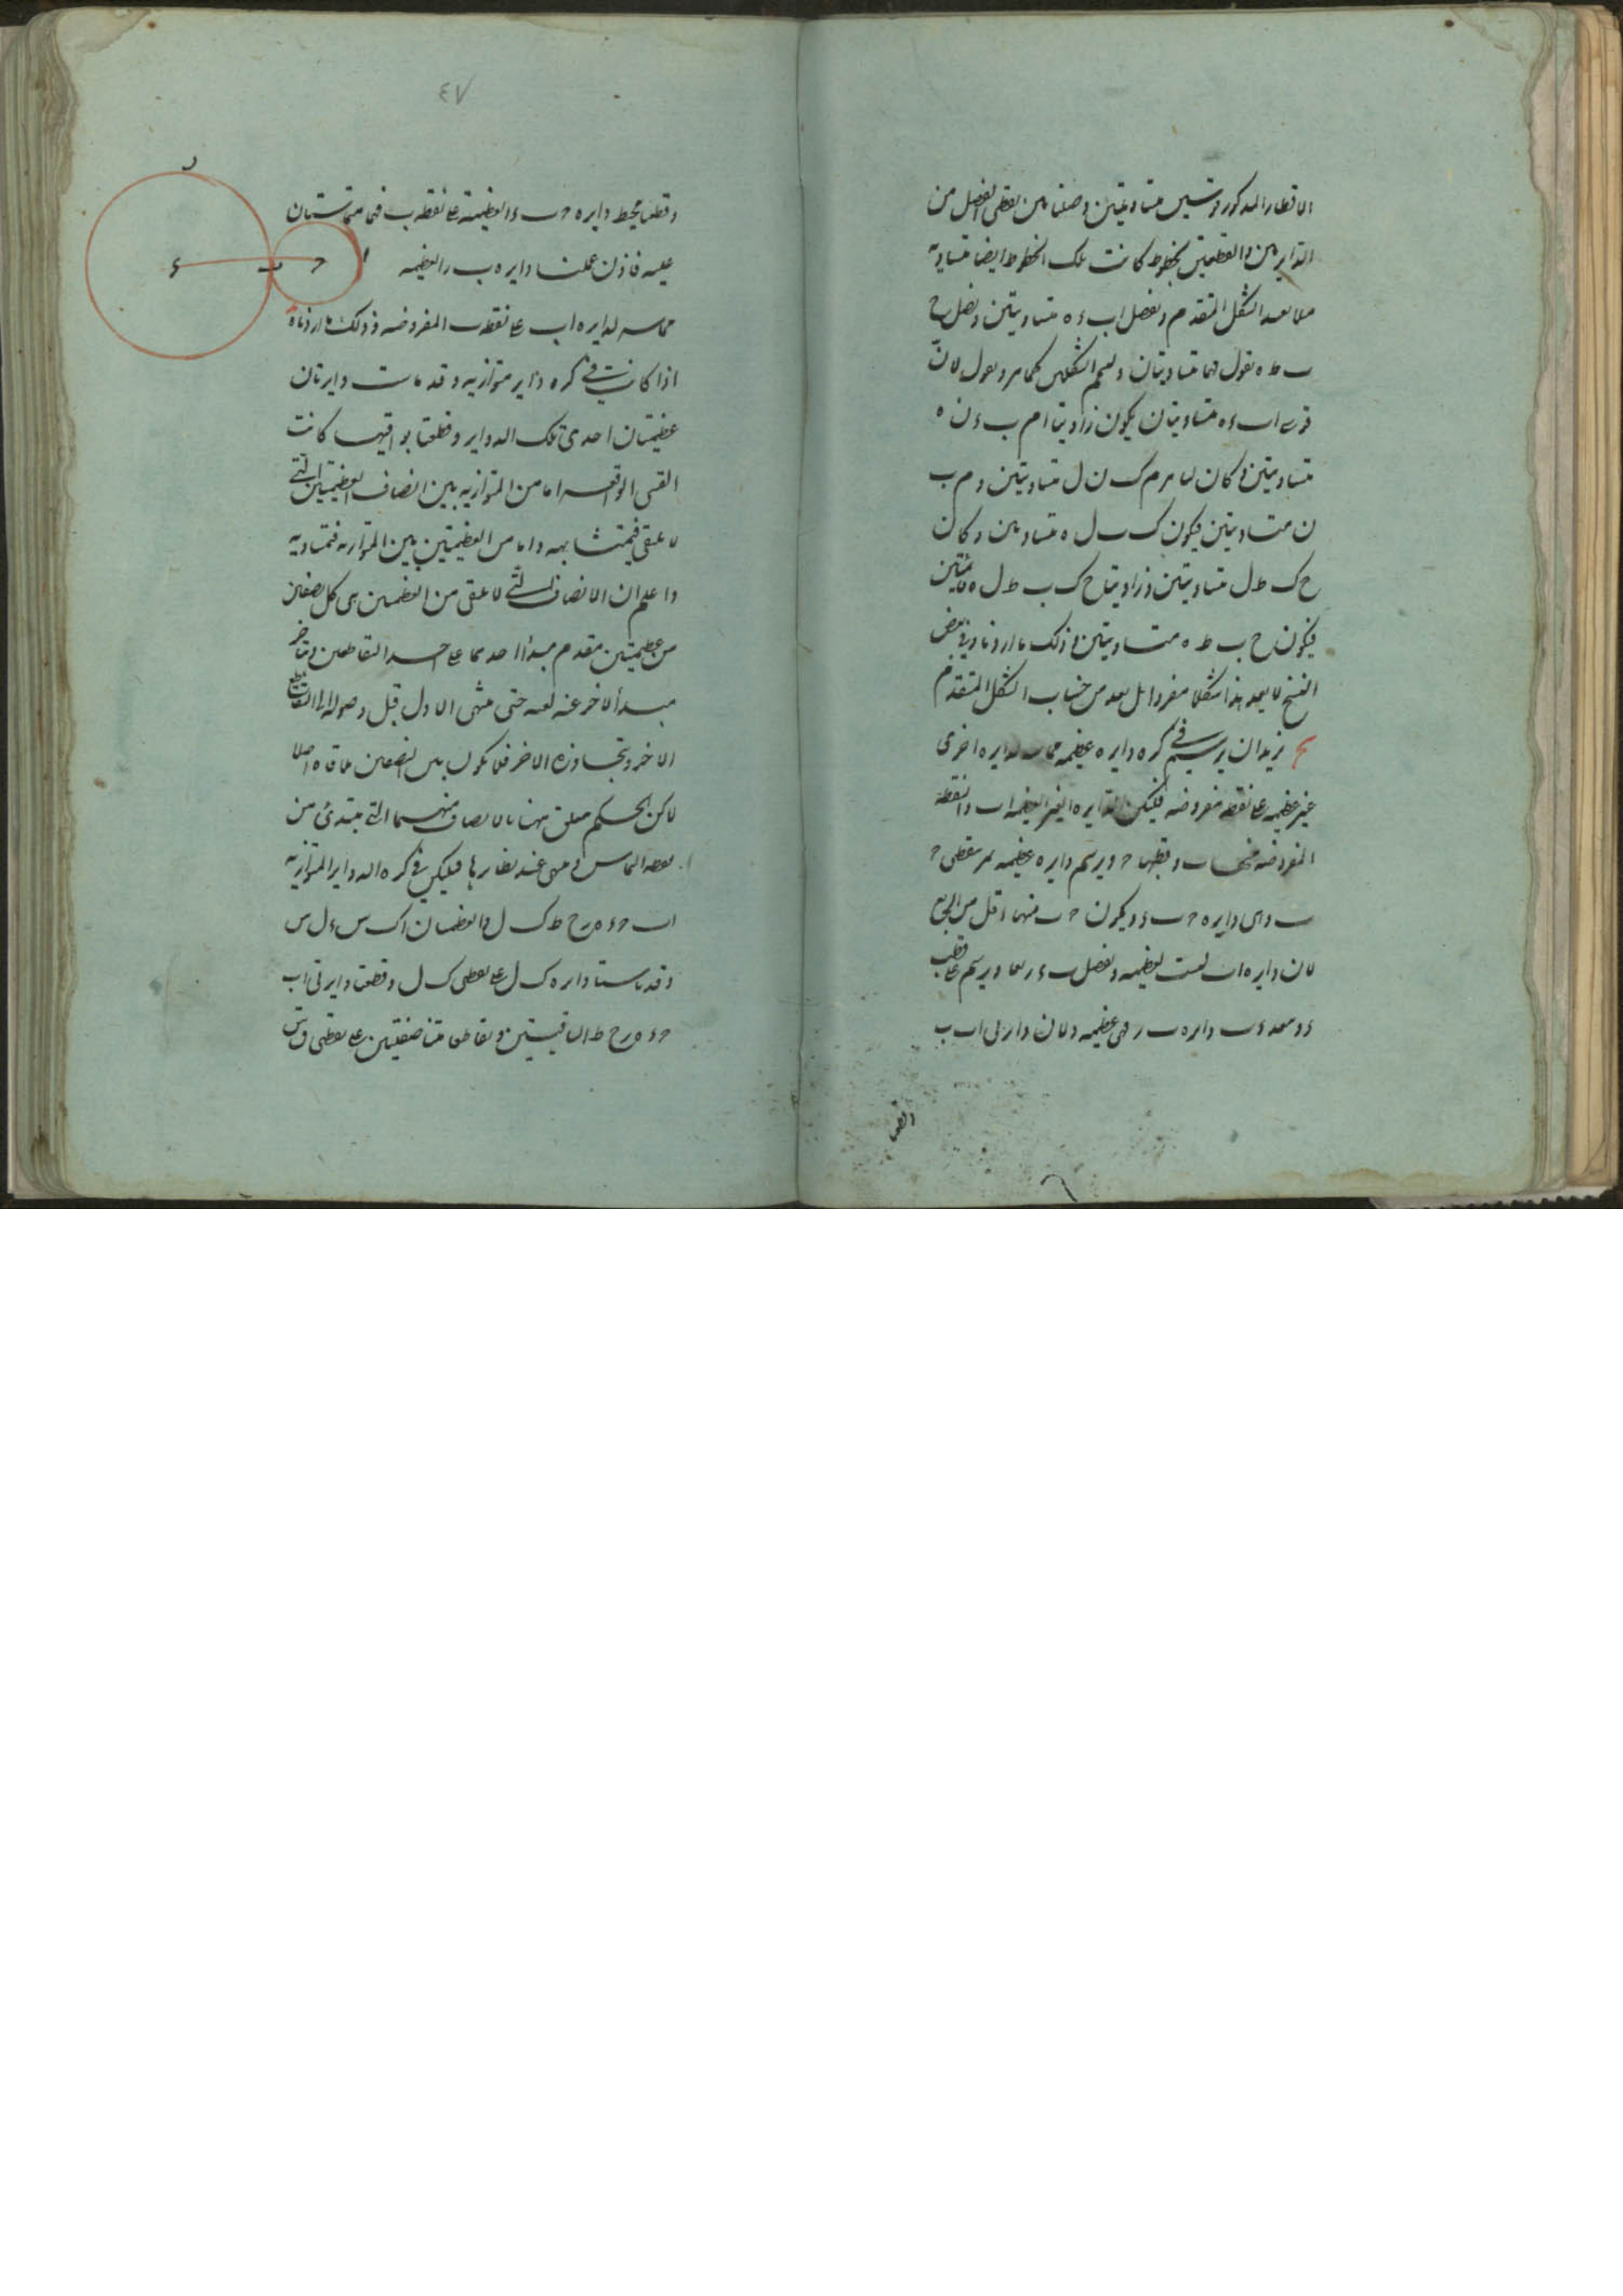 الاقطار المذكور وقسين متساويتين وصلنا بين نقطتى الفصل من
الدايرتين والقطبين بخطوط كانت تلك الخطوط ايضا متساوية
الشكل المتقدم ونفصل اب ء ه متساويتين ونصل ح
ب ط ه نقول فهما متساويتان ولنتمم الشكلين كما مر ونقول لان
قوسى اب ء ه متساويتان يكون زاويتا ا م ب ء ن ه
متساويتين وكان لما مر م ك ن ل متساويتين و م ب
ن متساويتين فيكون ك ب ل ه متساويتين وكان
ح ك ط ل متساويتين وزاويتا ح ك ب ط ل ه قائمتين
فيكون ح ب ط ه متساويتين وذلك ما اردناه وفى بعض
النسخ لا يعد هذا شكلا مفردا بل يعد من حساب الشكل المتقدم
يح نريد ان نرسم فى كره دايره عظيمه مماسه لدايره اخرى
غير عظيمه على نقطه مفروضه فليكن الدايره الغير العظيمه اب والنقطة
المفروضه منها ب وقطبها ح ونرسم دايره عظيمه تمر بنقطتى ح
ب وهى دايره ح ب ء ويكون ح ب منها اقل من الربع
لان دايره اب ليست بعظيمه ونفصل ب ء ربعا ونرسم على قطب
ء وببعد ء ب دايره ب ر فهى عظيمه ولان دايرتى اب ب
وقطعتا
٤٧
ر
وقطعتا محيط دايره ح ب ء العظيمة على نقطه ب فهما متماستان
ء ب ح ا
عليه فاذن عملنا دايره ب ر العظيمه
مماسه لدايره اب على نقطه ب المفروضه وذلك ما اردناه
اذا كانت فى كره دواير متوازيه وقد ماست دايرتان
عظيمتان احدى تلك الدواير وقطعتا بواقيها كانت
القسى الواقعه اما من المتوازيه بين انصاف العظيمتين التى
لا تلتقى فمتشابهه واما من العظيمتين بين المتوازيه فمتساويه
واعلم ان الانصاف التى لا تلتقى من العظيمتين هى كل نصفين
من عظيمتين مقدم مبدأ احدهما على احد التقاطعين ويتاخر
مبدأ الاخر عنه لعينه حتى ينتهى الاول قبل وصوله الى التقاطع
الاخر ويتجاوزه الاخر فلا يكون بين النصفين ملاقاه اصلا
لاكن الحكم متعلق ههنا بالانصاف منهما التى تبتدئ من
نقطه التماس وتنتهى عند نظايرها فليكن فى كره الدواير المتوازيه
اب ح ء ه ر ح ط ك ل والعظيمتان اك س ء ل س
وقد ماستا دايره ك ل على نقطتى ك ل وقطعتا دايرتى اب
ح ء ه ر ح ط الباقيتين وتقاطعا متناصفتين على نقطتى